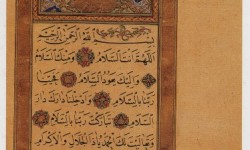 بسم الله الرحمن الرحيم
اللهم انت السلام ومنك السلام
واليك يعود السلام فحينا
ربنا بالسلام وادخلنا دارك دار
السلام تباركت ربنا
وتعاليت لك الحمد ياذا الجلال والاكرام